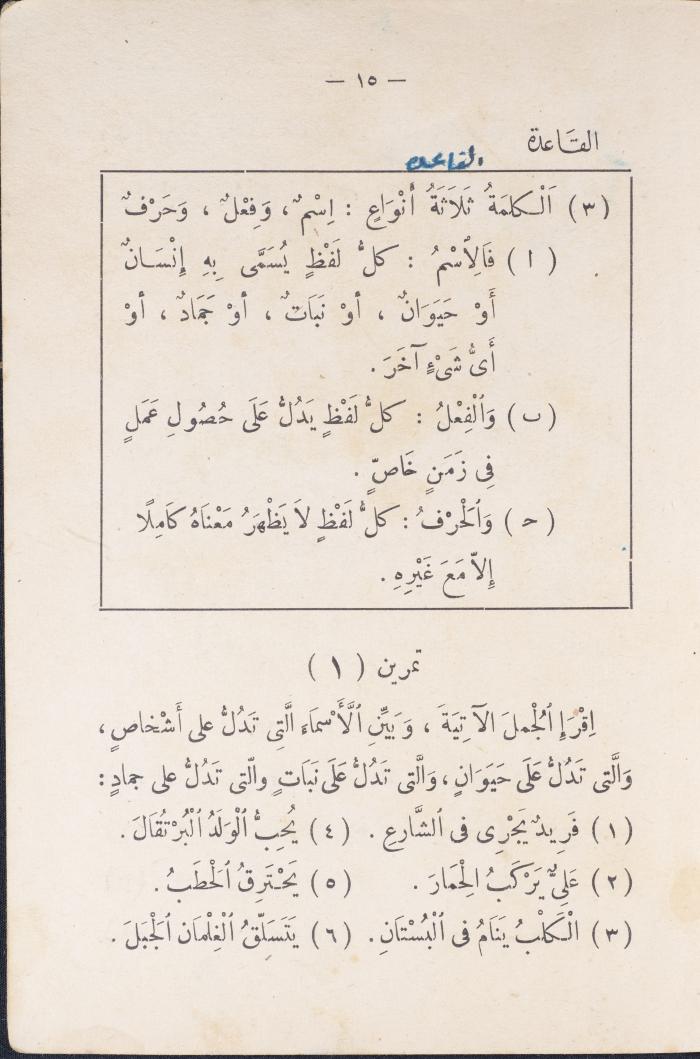 — ١٥ —
القَاعدة
القاعدة
(٣) اَلْكلمَةُ ثَلَاثَةُ أَنْوَاعٍ : اِسْمٌ، وَفِعْلٌ ، وَحَرْفٌ
(ا) فَالِاْسْمُ : كلُّ لَفْظٍ يُسَمَّى بِهِ إِنْسَانٌ
أَوْ حَيَوَانٌ ، أوْ نَبَاتٌ ، أوْ جَمَادٌ ، أوْ
أَىُّ شَىْءٍ آخَرَ .
(ب) وَالْفِعْلُ : كلُّ لَفْظٍ يَدُلُّ عَلَى حُصُولِ عَمَلٍ
فِى زَمَنٍ خَاصٍّ .
(ح) وَالْحَرْفُ : كلُّ لَفْظٍ لاَ يَظْهَرُ مَعْنَاهُ كَامِلًا
إِلاّ مَعَ غَيْرِهِ .
تمرين (١)
اِقْرَإِ الْجُملَ الآتِيَةَ ، وَبَيِّنِ الْأَسْمَاءَ الَّتِى تَدُلُّ على أَشْخاصٍ ،
وَالَّتى تَدُلُّ عَلَى حَيَوَانٍ ، وَالَّتى تَدُلُّ عَلَى نَبَاتٍ والّتى تَدُلُّ على جمادٍ :
(١) فَرِيدٌ يَجْرِى فى الشَّارعِ . (٤) يُحِبُّ الْوَلَدُ الْبُرْتُقَالَ .
(٢) عَلِىٌّ يَرْكَبُ الْحِمَارَ . (٥) يَحْتَرِقُ الْحَطَبُ .
(٣) الْكَلْبُ يَنَامُ فى الْبُسْتَانِ . (٦) يَتَسَلّقُ الْغِلْمَان الْجَبَلَ .